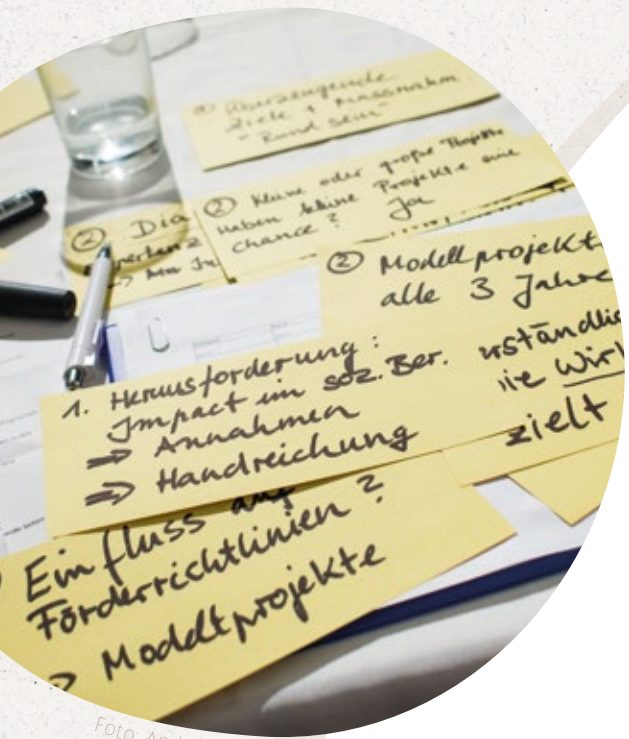 ② Überzeugende
Ziele + Massnahm.
"Rund sein"
② Kleine oder große Projekte
haben kleine Projekte eine
Chance? Ja
② Dia
② Modellprojekt
alle 3 Jahre
1. Herausforderung:
Impact im soz. Ber.
⇒ Annahmen
⇒ Handreichung
rständlic
ie Wirk
zielt
Einfluss auf
Förderrichtlinien?
Modellprojekte
Foto: